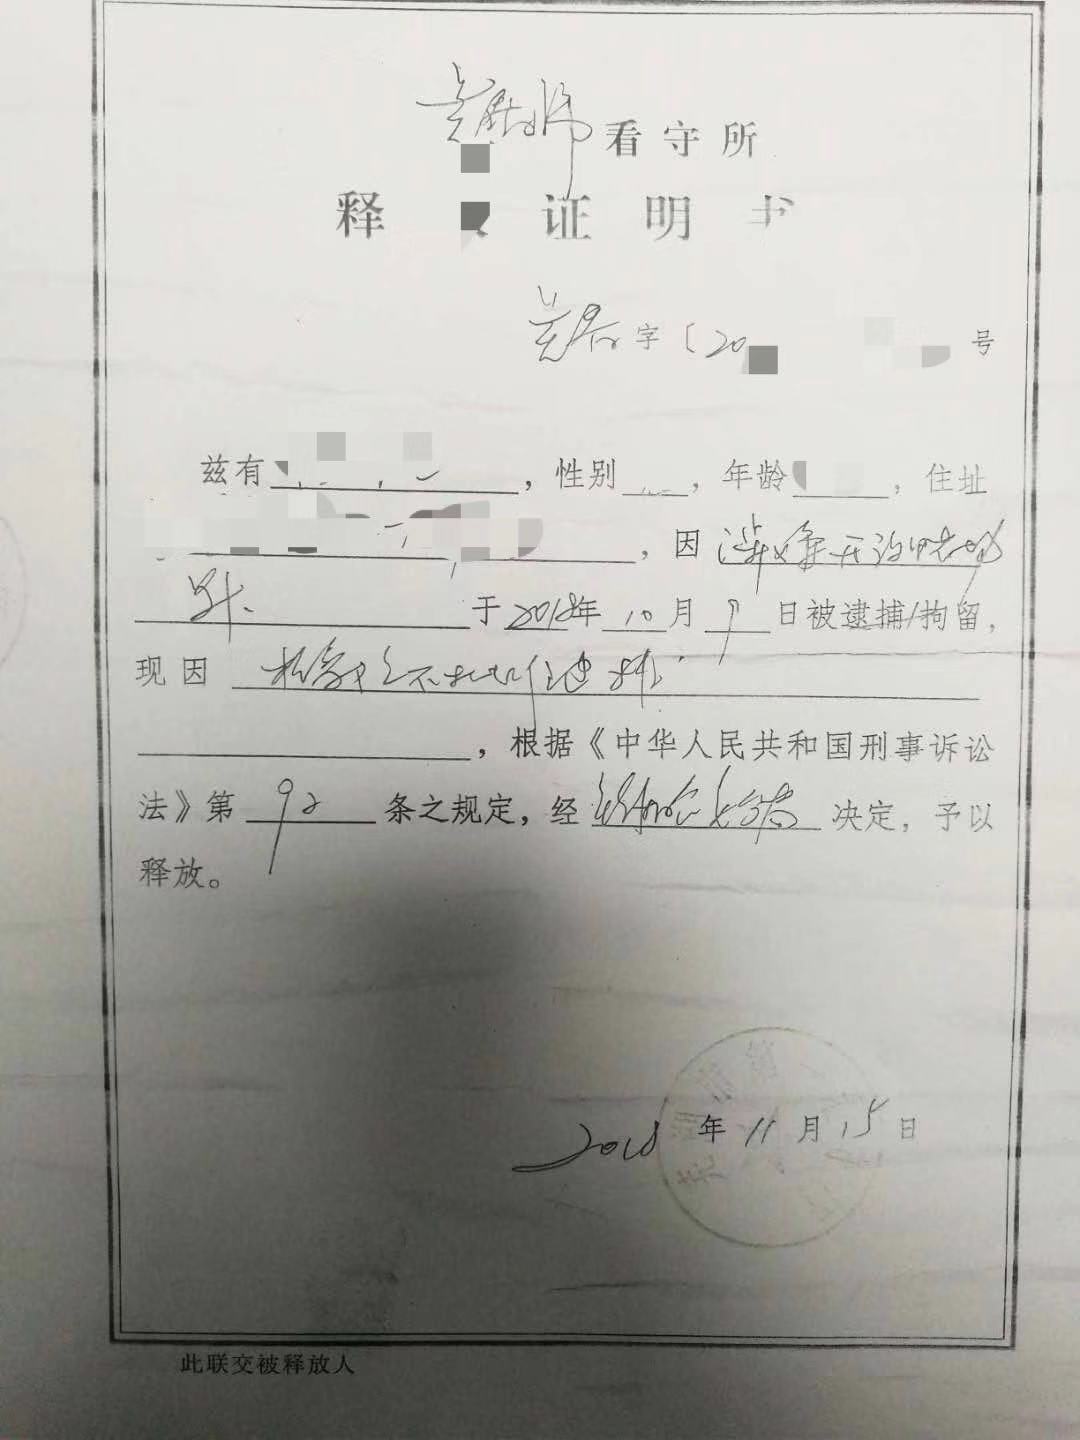 看守所
释 证 明 书
字〔20 号
兹有 ，性别 ，年龄 ，住址
，因涉嫌开设赌场
罪 于2018年10月9日被逮捕/拘留，
现因 检察院不批准逮捕
，根据《中华人民共和国刑事诉讼
法》第 92 条之规定，经 决定，予以
释放。
2018年11月15日
此联交被释放人